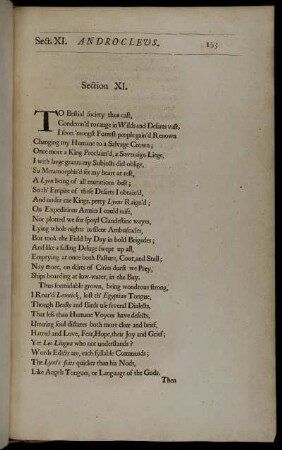 Sect. XI. ANDROCLEUS.
Section XI.
TO Bestial society thus cast,
Condemn'd to range in Wilds and Desarts vast,
I from 'mongst Forrest-people gain'd Renown
Changing my Humane to a Salvage Crown;
Once more a King Proclaim'd, a Sovereign Liege,
I with large grants my Subjects did oblige,
So Metamorphis'd fix my heart at rest,
A Lyon being of all mutations best;
So th' Empire of these Desarts I obtain'd,
And under me Kings, petty Lyons Raign'd;
On Expedition Armies I could raise,
Nor plotted we for spoyl Clandestine wayes,
Lying whole nights in close Ambuscades,
But took the Field by Day in bold Brigades;
And like a falling Deluge swept up all,
Emptying at once both Pasture, Coat, and Stall;
Nay more, on skirts of Cities durst we Prey,
Ships boarding at low-water, in the Bay.
Thus formidable grown, being wondrous strong,
I Roar'd lost th' Egyptian Tongue,
Though Beasts and Birds use several Dialects,
That less than Humane Voyces have defects,
Uttering soul dictates both more clear and brief,
Hatred and Love, Fear, Hope, their Joy and Grief;
Yet Leo Lingua who not understands?
Words Edicts are, each syllable Commands;
The Lyon's flies quicker than his Nods,
Like Angels Tongues, or Language of the Gods.
Then